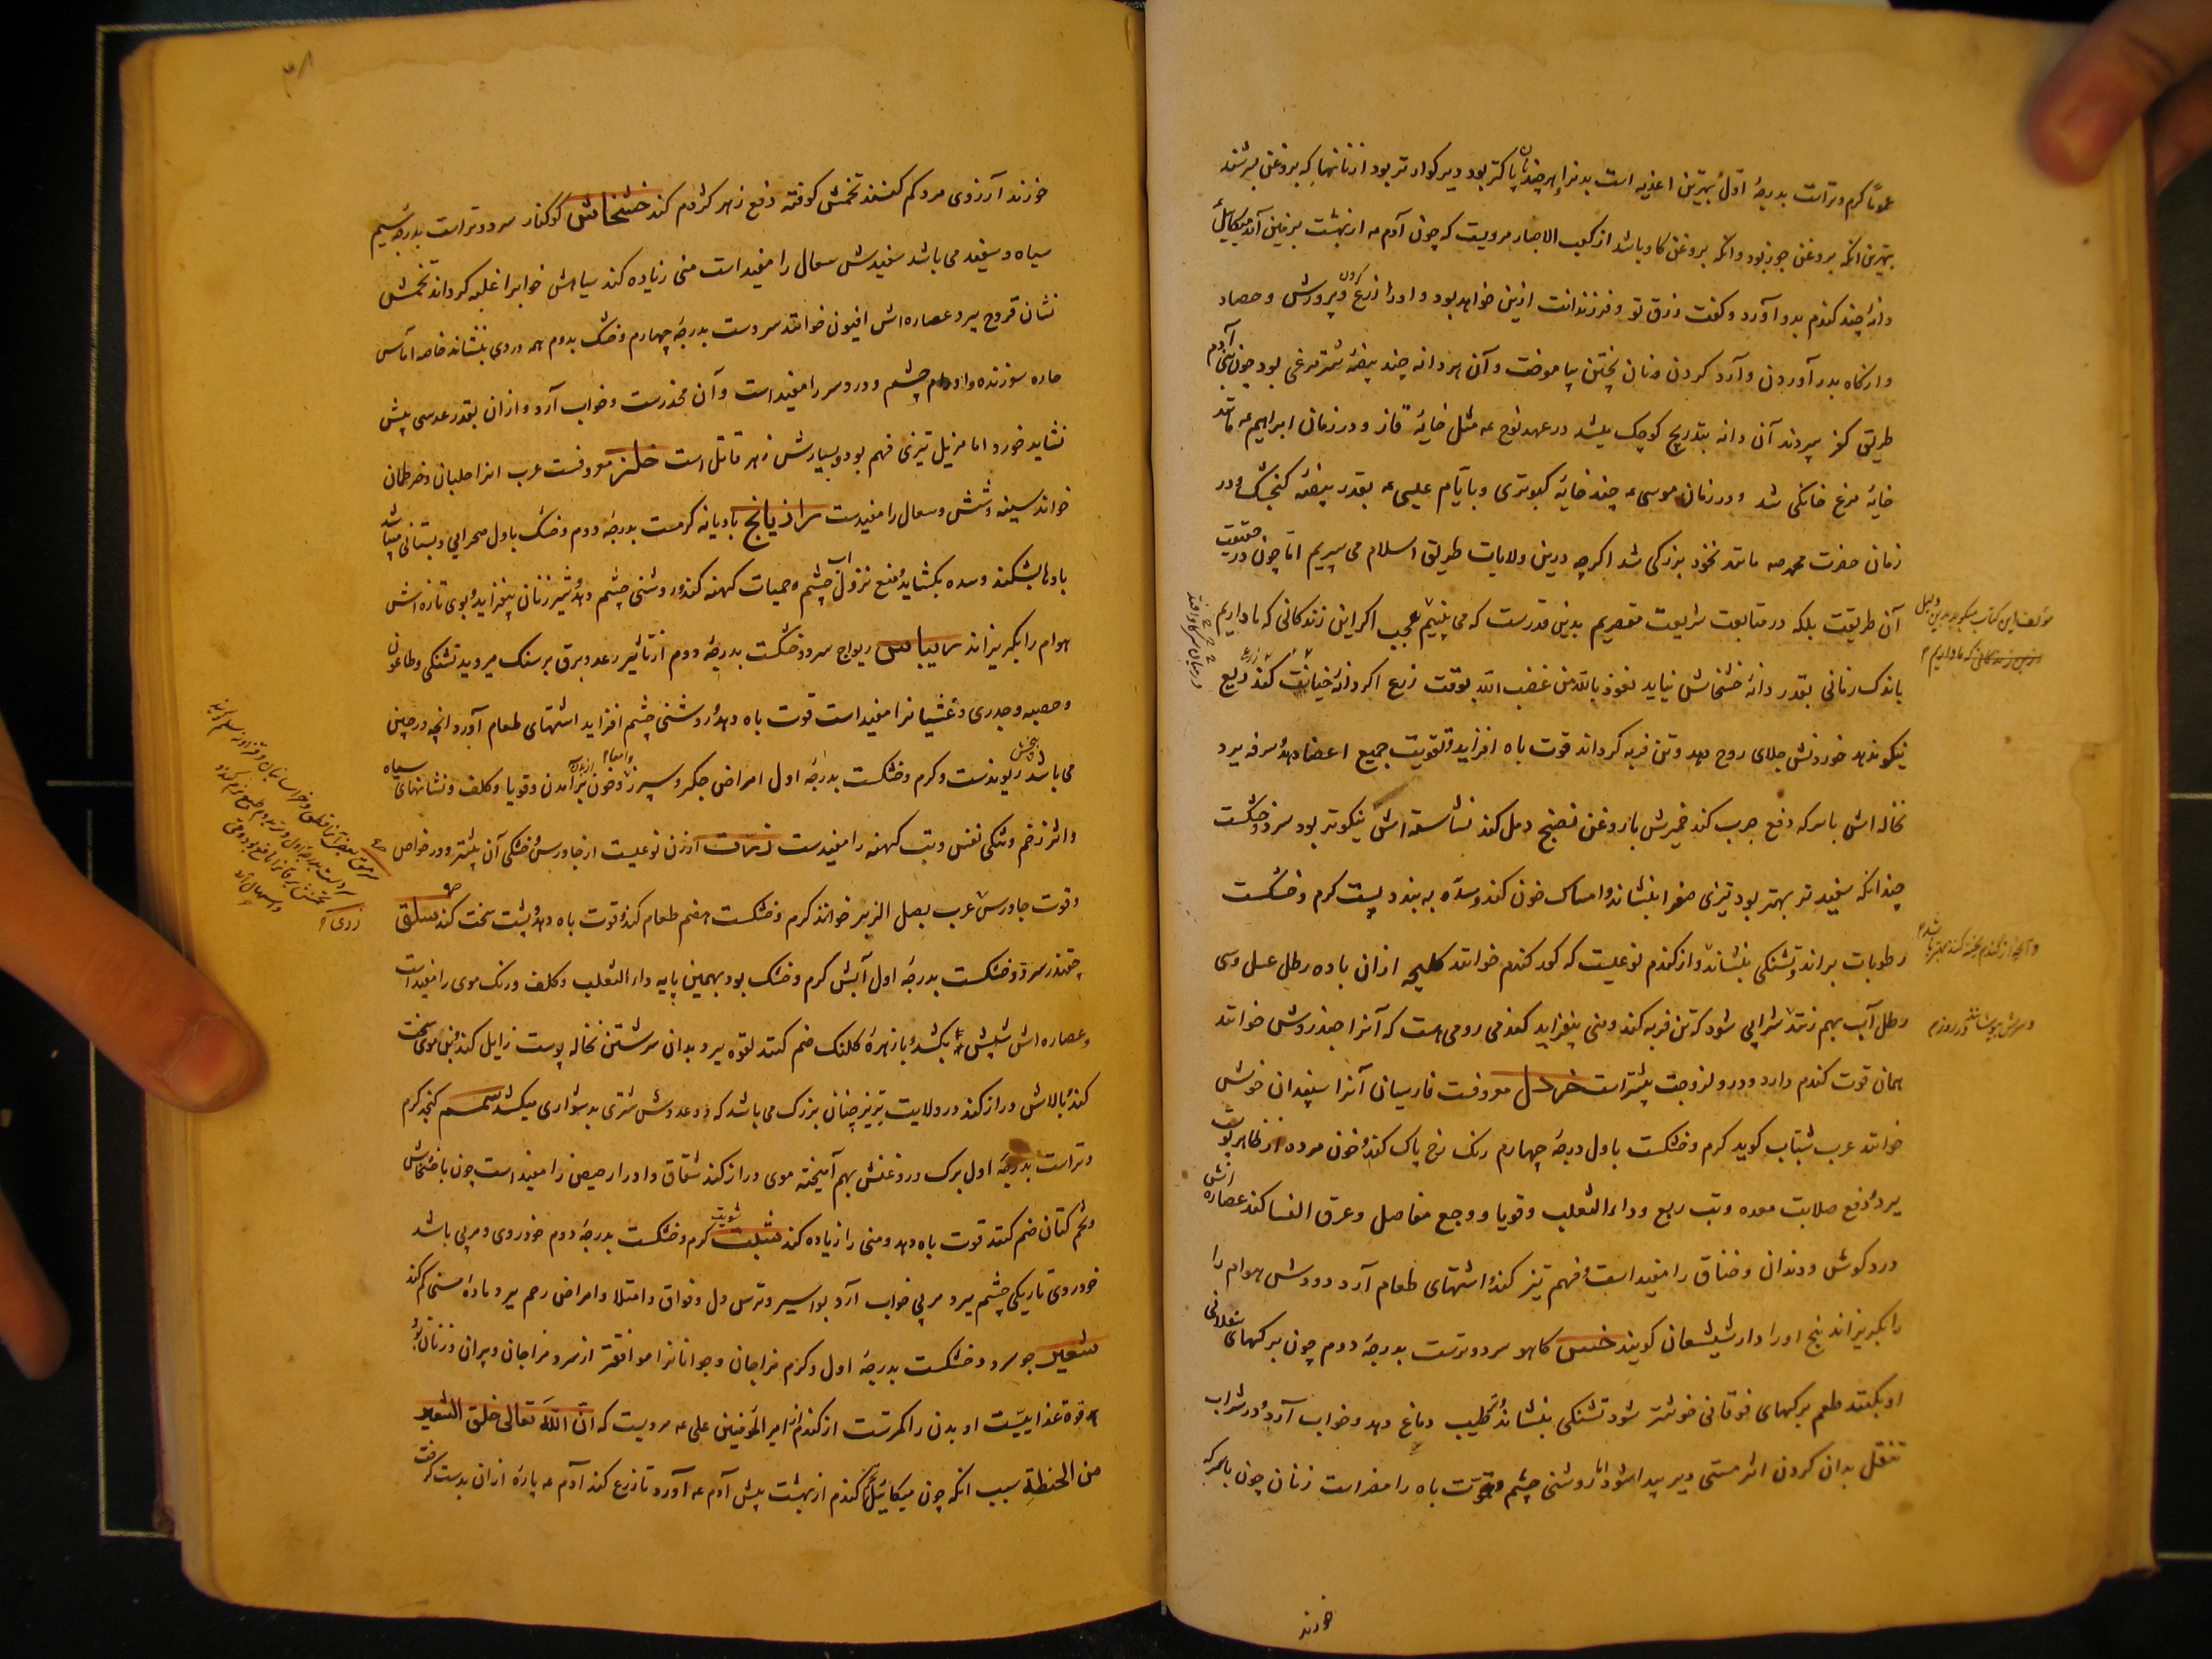 عموماً گرم و تر است بدرجهٔ اول بهترین اغذیه است بدنرا هر چند پاکتر بود دیر گوارتر بود از نانها که بروغن بسرشند
بهترین آنکه بروغن جوز بود و آنکه بروغن گاو باشد از کعب الاحبار مرویست که چون آدم عه از بهشت بزمین آمد میکائیل
دانهٔ چند گندم بدو آورد و گفت رزق تو و فرزندانت ازین خواهد بود و او را زرع کردن و پرورش و حصاد
و از کاه بدر آوردن و آرد کردن و نان پختن بیاموخت و آن هر دانه چند بیضهٔ شترمرغی بود چون بنی آدم
طریق کفر سپردند آن دانه بتدریج کوچک میشد در عهد نوح عه مثل خایهٔ قاز و در زمان ابراهیم عه مانند
خایهٔ مرغ خانگی شد و در زمان موسی عه چند خایهٔ کبوتری و بایام عیسی عه بقدر بیضهٔ گنجشک و در
زمان حضرت محمد صه مانند نخود بزرگی شد اگرچه درین ولایات طریق اسلام می سپریم اما چون در حقیقت
آن طریقت بلکه در متابعت شریعت مقصریم بدین قدرست که می بینیم عجب اگر این زندگانی که ما داریم
باندک زمانی بقدر دانهٔ خشخاش نیاید نعوذ بالله من غضب الله بوقت زرع اگر دانه خیانت کند ریع
نیکو ندهد خوردنش جلای روح دهد و تن فربه گرداند قوت باه افزاید و تقویت جمیع اعضا دهد و سرفه ببرد
نخاله اش باسرکه دفع جرب کند خمیرش باروغن نضج دمل کند نشاسته اش نیکوتر بود سرد و خشکست
چندانکه سفیدتر بهتر بود تیزی صفرا بنشاند و امساک خون کند و سده به بندد پست گرم و خشکست
رطوبات براند و تشنگی بنشاند و از گندم نوعیست که کور گندم خوانند کلیجه از آن با ده رطل عسل و سی
رطل آب بهم زنند شرابی شود که تن فربه کند و منی بیفزاید گندمی رومی است که آنرا جندروش خوانند
همان قوت گندم دارد و درو لزوجت بیشتر است خردل معروفست فارسیان آنرا سپندان خوش
خوانند عرب شتاب گوید گرم و خشکست باول درجهٔ چهارم رنگ رخ پاک کند و خون مرده از ظاهر پوست
ببرد و دفع صلابت معده و تب ربع و داء الثعلب و قوبا و وجع مفاصل و عرق النسا کند عصاره اش
درد گوش و دندان و خناق را مفید است و فهم تیز کند و اشتهای طعام آرد دودش هوام را
را بگریزاند بیخ او را دار شیشعان گویند خس کاهو سرد و ترست بدرجهٔ دوم چون برگهای سفلانی
او بکنند طعم برگهای فوقانی خوشتر شود تشنگی بنشاند و ترطیب دماغ دهد و خواب آرد و در شراب
تنقل بدان کردن اثر مستی دیر پیدا شود اما روشنی چشم و قوت باه را مضر است زنان چون باسرکه
خورند
مؤلف این کتاب میگوید بدین دلیل
ازین زندگانی که ما داریم
خورند آرزوی مرد کم کنند تخمش کوفته دفع زهر کژدم کند خشخاش کوکنار سرد و تر است بدرجهٔ سیم
سیاه و سفید می باشد سفیدش سعال را مفید است منی زیاده کند سیاهش خوابرا غلبه گرداند تخمش
نشان قروح ببرد عصاره اش افیون خوانند سردست بدرجهٔ چهارم و خشک بدوم همه دردی بنشاند خاصه آماس
حاره سوزنده و اورام چشم و درد سر را مفید است و آن مخدرست و خواب آرد و از آن بقدر عدسی بیش
نشاید خورد اما مزیل تیزی فهم بود و بسیارش زهر قاتل است خلر معروفست عرب انرا جلبان و خرطمان
خواند سینه و شش و سعال را مفیدست رازیانج بادیانه گرمست بدرجهٔ دوم و خشک باول صحرایی و بستانی میباشد
بادها بشکند و سده بگشاید و منع نزول اب چشم و حمیات کهنه کند و روشنی چشم دهد و شیر زنان بیفزاید و بوی تازه اش
هوام را بگریزاند ریباس ریواج سرد و خشکست بدرجهٔ دوم از تأثیر رعد و برق بر سنگ میروید تشنگی و طاعون
و حصبه و جدری و غثیانرا مفید است قوت باه دهد و روشنی چشم افزاید اشتهای طعام آورد انچه در چین
می باشد بیخش ریوندست و گرم و خشکست بدرجهٔ اول امراض جگر و سپرز و امعا و خون برآمدن و قوبا و کلف و نشانهای سیاه
و اثر زخم و تنگی نفس و تب کهنه را مفیدست ذرت ارزن نوعیست از جاورس و خشکی آن بیشتر و در خواص
و قوت جاورس عرب بصل الزیر خواند گرم و خشکست هضم طعام کند و قوت باه دهد و پشت سخت کند سلق
چقندر سرد و خشکست بدرجهٔ اول آبش گرم و خشک بود بهمین پایه داء الثعلب و کلف و رنگ موی را مفید است
و عصاره اش شپش بکشد و با زهرهٔ کلنگ ضم کنند لقوه ببرد و بدان سرشتن نخاله پوست زایل کند و بن موی سخت
کند و بالاش دراز کند در ولایت تبریز چنان بزرگ می باشد که دو عدد وش شتری بدشواری میکشد سمسم کنجد گرم
و تر است بدرجهٔ اول برگ و روغنش بهم آمیخته موی دراز کند شقاق و ادرار حیض را مفید است چون با خشخاش
و تخم کتان ضم کنند قوت باه دهد و منی را زیاده کند شبت شویت گرم و خشکست بدرجهٔ دوم خودروی و مربی باشد
خودروی تاریکی چشم ببرد مربی خواب آرد بواسیر و ترس دل و فواق و امتلا و امراض رحم ببرد و مادهٔ منی کم کند
شعیر جو سرد و خشکست بدرجهٔ اول و گرم مزاجان و جوانانرا موافقتر از سرد مزاجان و پیران و زنان بود
قوة غذاییت او بدن را کمترست از گندم از امیر المؤمنین علی عه مرویست که ان الله تعالی خلق الشعیر
من الحنطة سبب انکه چون میکائیل گندم از بهشت پیش آدم عه آورد تا زرع کند آدم عه پارهٔ از ان بدست گرفت